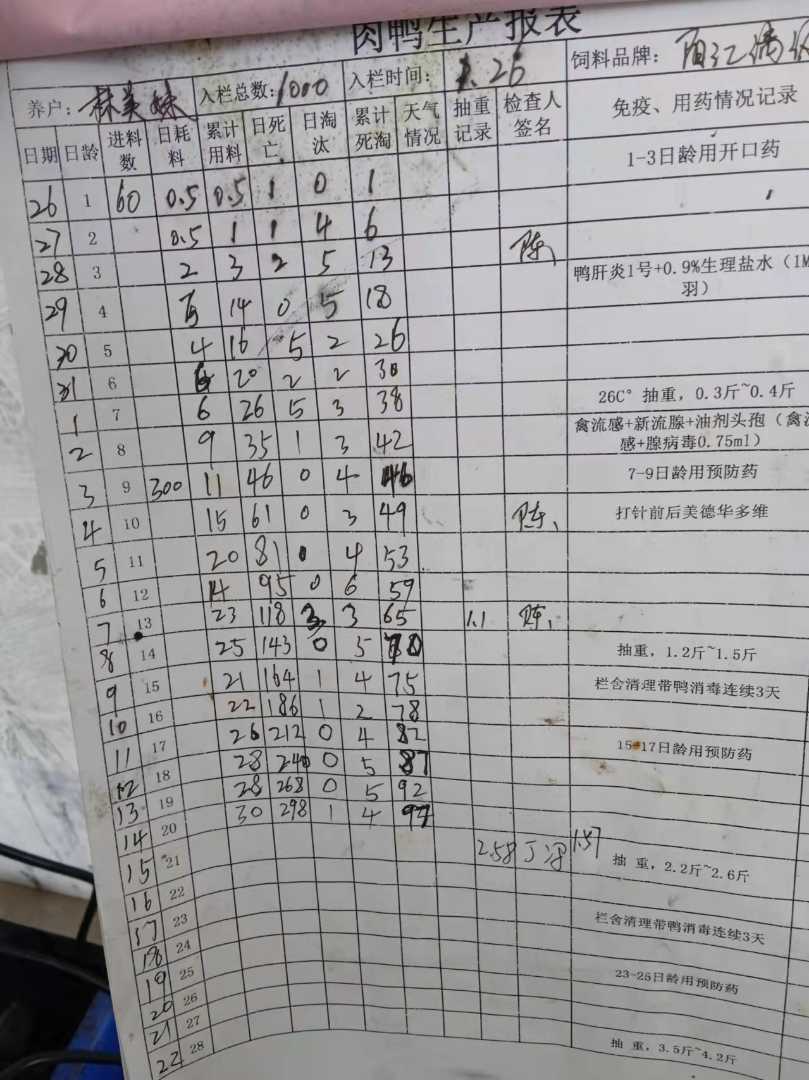 肉鸭生产报表
养户: 林美妹 入栏总数: 1000 入栏时间: 1.26 饲料品牌:
日期 日龄 进料数 日耗料 累计用料 日死亡 日淘汰 累计死淘 天气情况 抽重记录 检查人签名 免疫、用药情况记录
26 1 60 0.5 0.5 1 0 1 1-3日龄用开口药
27 2 0.5 1 1 4 6
28 3 2 3 2 5 13 陈
29 4 14 0 5 18 鸭肝炎1号+0.9%生理盐水（1M
羽）
30 5 4 16 5 2 26
31 6 20 2 2 30
1 7 6 26 5 3 38 26C° 抽重, 0.3斤~0.4斤
2 8 9 35 1 3 42 禽流感+新流腺+油剂头孢（禽流
感+腺病毒0.75ml）
3 9 300 11 46 0 4 46 7-9日龄用预防药
4 10 15 61 0 3 49 陈、 打针前后美德华多维
5 11 20 81 0 4 53
6 12 14 95 0 6 59
7 13 23 118 3 3 65 1.1 陈、
8 14 25 143 0 5 70 抽重, 1.2斤~1.5斤
9 15 21 164 1 4 75 栏舍清理带鸭消毒连续3天
10 16 22 186 1 2 78
11 17 26 212 0 4 82 15-17日龄用预防药
12 18 28 240 0 5 87
13 19 28 268 0 5 92
14 20 30 298 1 4 97
15 21 2.58 1.57 抽 重, 2.2斤~2.6斤
16 22
17 23 栏舍清理带鸭消毒连续3天
18 24
19 25 23-25日龄用预防药
20 26
21 27
22 28 抽 重, 3.5斤~4.2斤